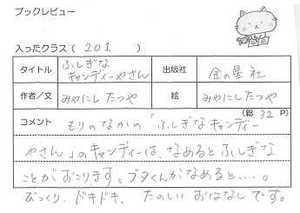 ブックレビュー
入ったクラス ( 201 )
タイトル ふしぎな キャンディーやさん 出版社 金の星社
作者/文 みやにし たつや 絵 みやにし たつや
コメント (総 32 P)
もりのなかの「ふしぎなキャンディー
やさん」のキャンディーは、なめるとふしぎな
ことがおこります。ブタくんがなめると・・・。
びっくり、ドキドキ、たのしいおはなしです。